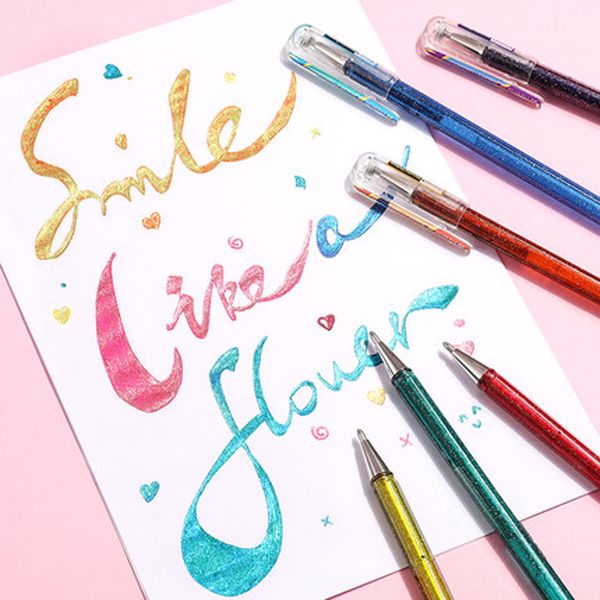 Smile
Like a
flower